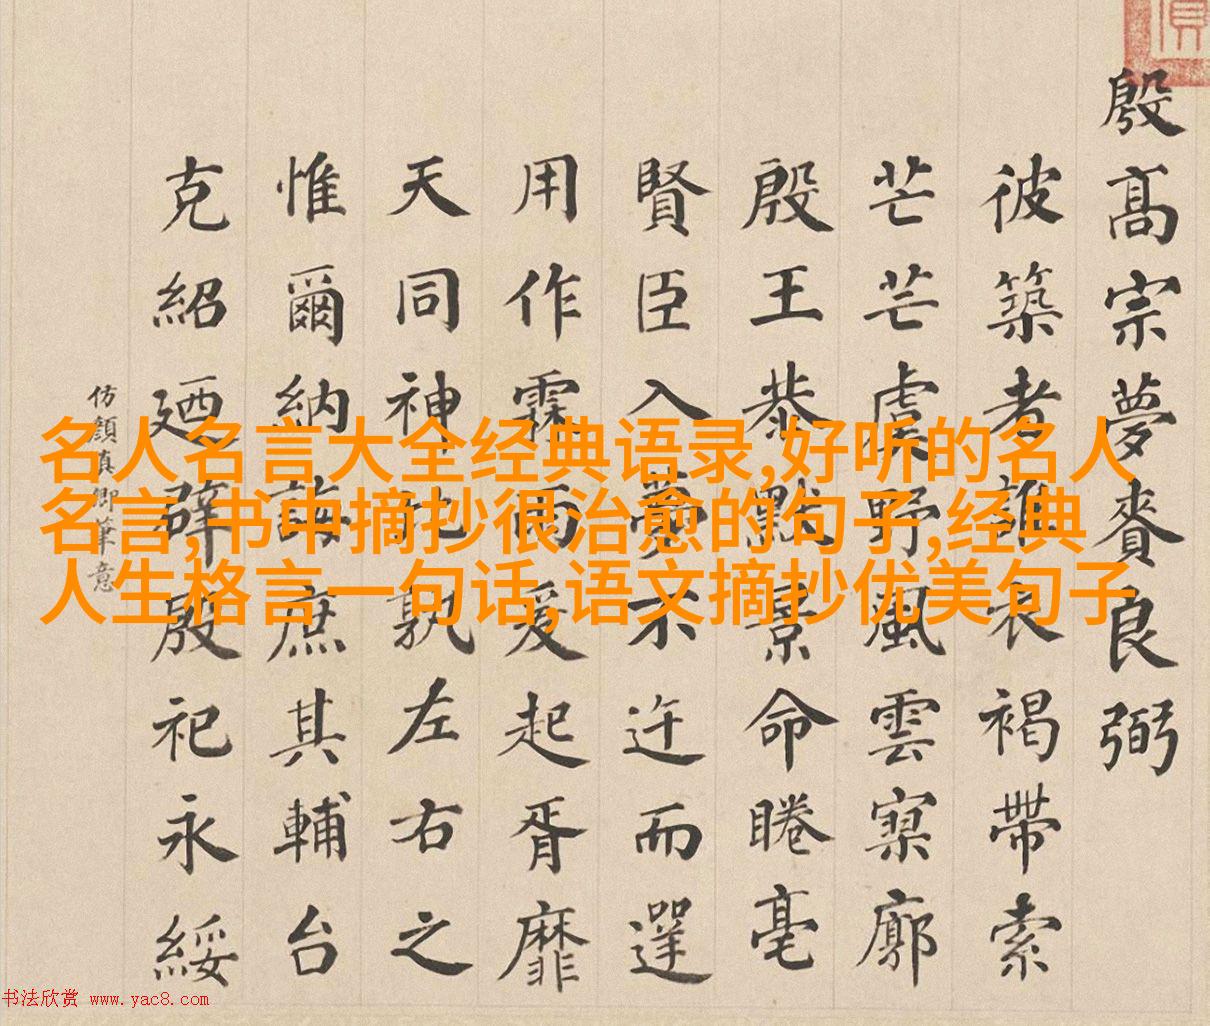 殷髙宗夢賚良弼
彼築者誰衣褐帶索
芒芒虞野風雲寥廓
殷王恭默景命睠亳
賢臣入夢不迕而遻
用作霖雨爰起胥靡
天同神孰左右之
惟爾納誨庶其輔台
克紹廼辟殷祀永綏
仿顔真卿筆意
名人名言大全经典语录,好听的名人
名言,书中摘抄很治愈的句子,经典
人生格言一句话,语文摘抄优美句子
书法欣赏 www.yac8.com